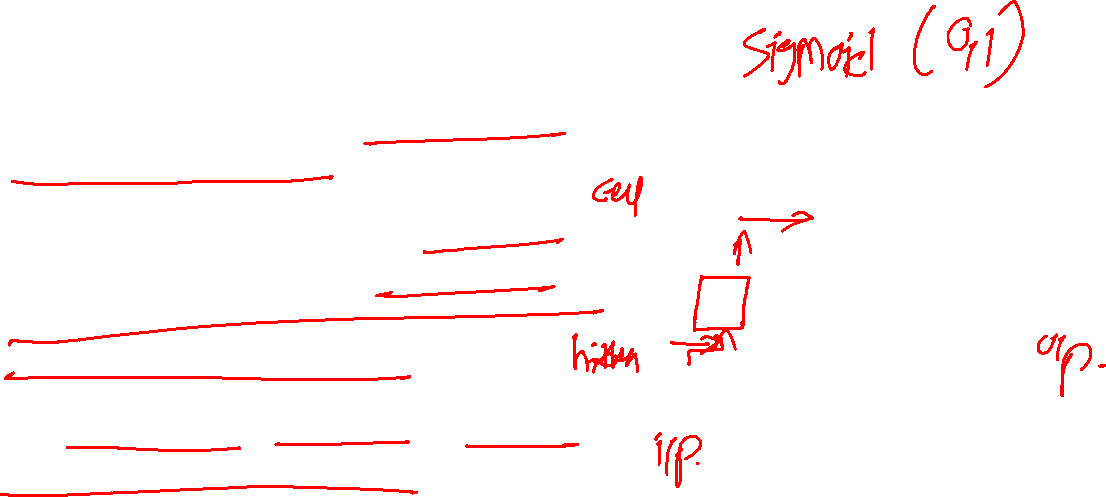 Sigmoid (0,1)
cell
hidden
o/p.
i/p.